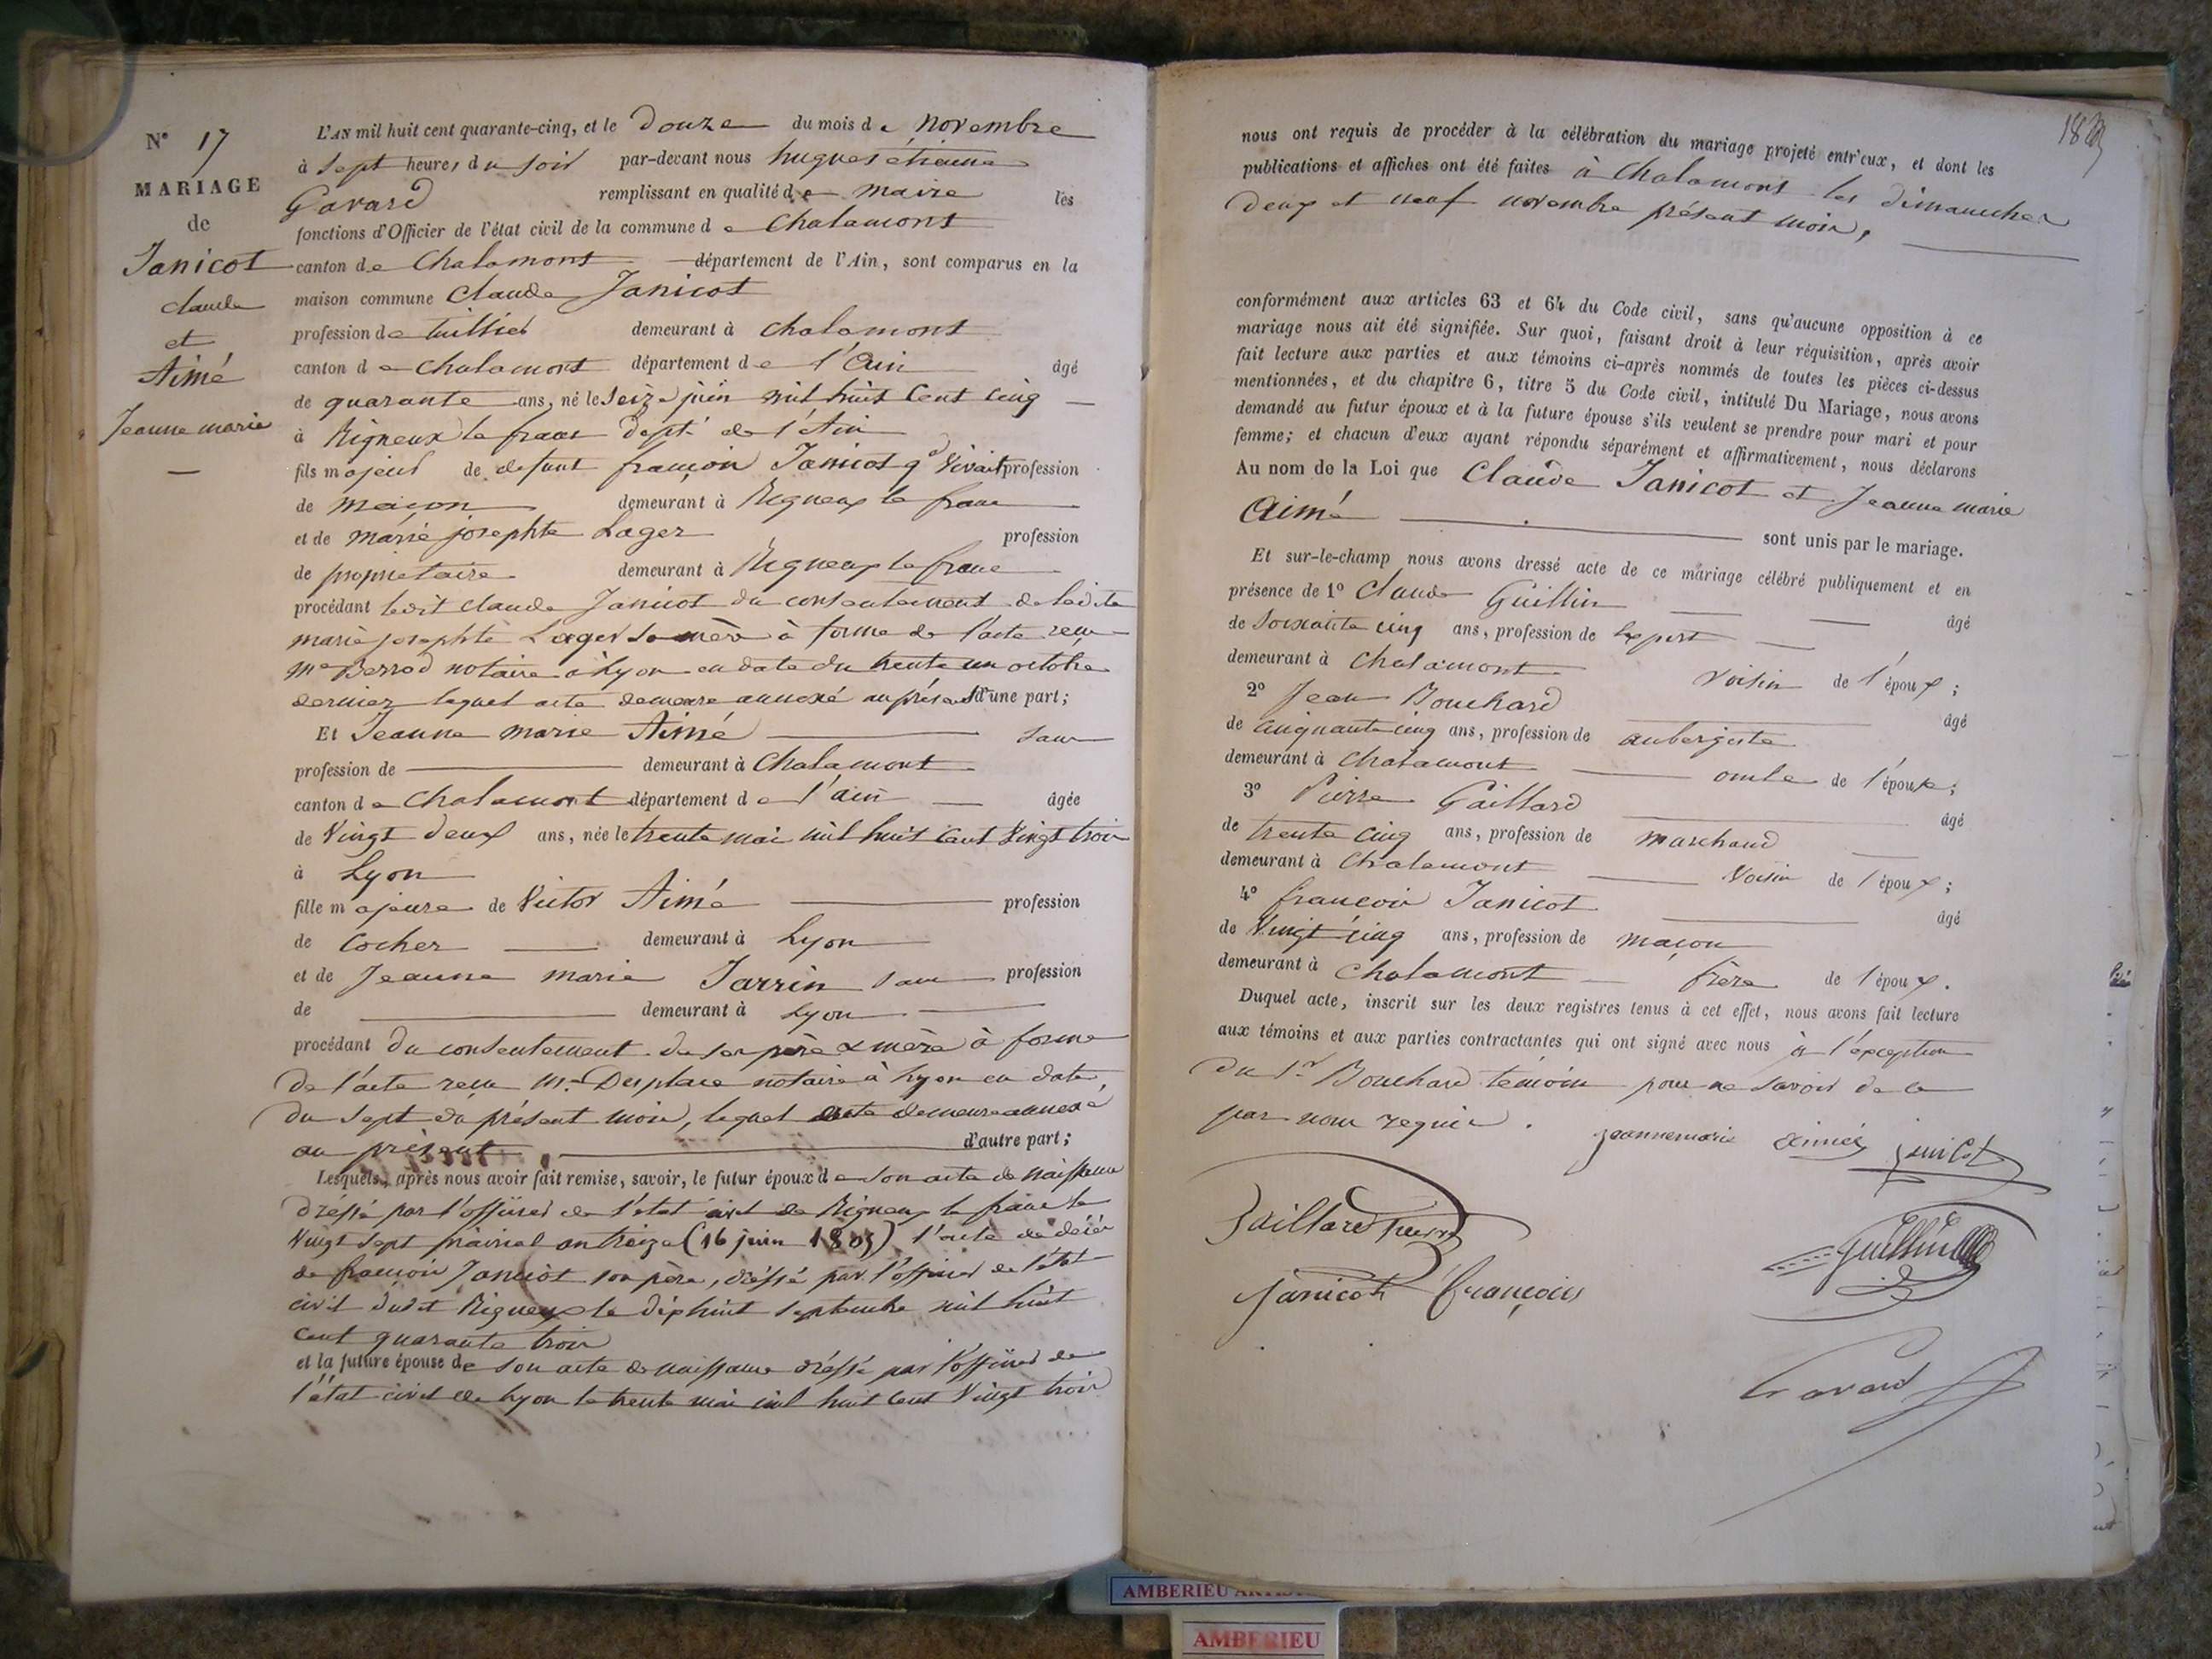 N° 17
MARIAGE
de
Janicot
claude
et
Aimé
Jeanne marie
L'AN mil huit cent quarante-cinq, et le Douze du mois de Novembre
à sept heures du soir par-devant nous hugues étienne
Gavard remplissant en qualité de maire les
fonctions d'Officier de l'état civil de la commune de Chalamont
canton de Chalamont département de l'Ain, sont comparus en la
maison commune Claude Janicot
profession de tuillier demeurant à chalamont
canton de chalamont département de l'Ain âgé
de quarante ans, né le Seize juin mil huit cent cinq
à Rigneux le franc dépt de l'Ain
fils majeur de defunt françois Janicot qd vivait profession
de maçon demeurant à Rigneux le franc
et de marie josephte Lager profession
de propriétaire demeurant à Rigneux le franc
procédant ledit claude Janicot du consentement de ladite
marie josephte Lager sa mère à forme de l'acte reçu
me Berrod notaire à Lyon en date du trente un octobre
dernier lequel acte demeure annexé au présent d'une part;
Et Jeanne marie Aimé sans
profession de demeurant à Chalamont
canton de Chalamont département de l'ain âgée
de vingt deux ans, née le trente mai mil huit cent vingt trois
à Lyon
fille majeure de Victor Aimé profession
de Cocher demeurant à Lyon
et de Jeanne marie Jarrin sans profession
de demeurant à Lyon
procédant du consentement de ses père & mère à forme
de l'acte reçu Me Desplace notaire à Lyon en date,
du sept du présent mois, lequel acte demeure annexé
au présent d'autre part;
Lesquels, après nous avoir fait remise, savoir, le futur époux de son acte de naissance
dréssé par l'officier de l'état civil de Rigneux le franc le
vingt sept prairial an treize (16 juin 1805) l'acte de décès
de françois Janicot son père, dréssé par l'officier de l'état
civil dudit Rigneux le dix huit septembre mil huit
cent quarante trois
et la future épouse de son acte de naissance dréssé par l'officier de
l'état civil de Lyon le trente mai mil huit cent vingt trois
nous ont requis de procéder à la célébration du mariage projeté entr'eux, et dont les
publications et affiches ont été faites à Chalamont les dimanches
deux et neuf novembre présent mois,
conformément aux articles 63 et 64 du Code civil, sans qu'aucune opposition à ce
mariage nous ait été signifiée. Sur quoi, faisant droit à leur réquisition, après avoir
fait lecture aux parties et aux témoins ci-après nommés de toutes les pièces ci-dessus
mentionnées, et du chapitre 6, titre 5 du Code civil, intitulé Du Mariage, nous avons
demandé au futur époux et à la future épouse s'ils veulent se prendre pour mari et pour
femme; et chacun d'eux ayant répondu séparément et affirmativement, nous déclarons
Au nom de la Loi que Claude Janicot et Jeanne marie
Aimé sont unis par le mariage.
Et sur-le-champ nous avons dressé acte de ce mariage célébré publiquement et en
présence de 1° Claude Guillin âgé
de Soixante cinq ans, profession de Expert
demeurant à Chalamont voisin de l'époux;
2° Jean Bouchard âgé
de cinquante cinq ans, profession de aubergiste
demeurant à Chalamont oncle de l'épouse;
3° Pierre Gaillard âgé
de trente cinq ans, profession de marchand
demeurant à Chalamont voisin de l'époux;
4° françois Janicot âgé
de vingt cinq ans, profession de maçon
demeurant à Chalamont frère de l'époux.
Duquel acte, inscrit sur les deux registres tenus à cet effet, nous avons fait lecture
aux témoins et aux parties contractantes qui ont signé avec nous à l'exception
du sr Bouchard témoin pour ne savoir de ce
par nous requis.
jeannemarie aimée janicot
Gaillard Pierre
Guillin
janicot françois
Gavard
AMBERIEU
AMBERIEU